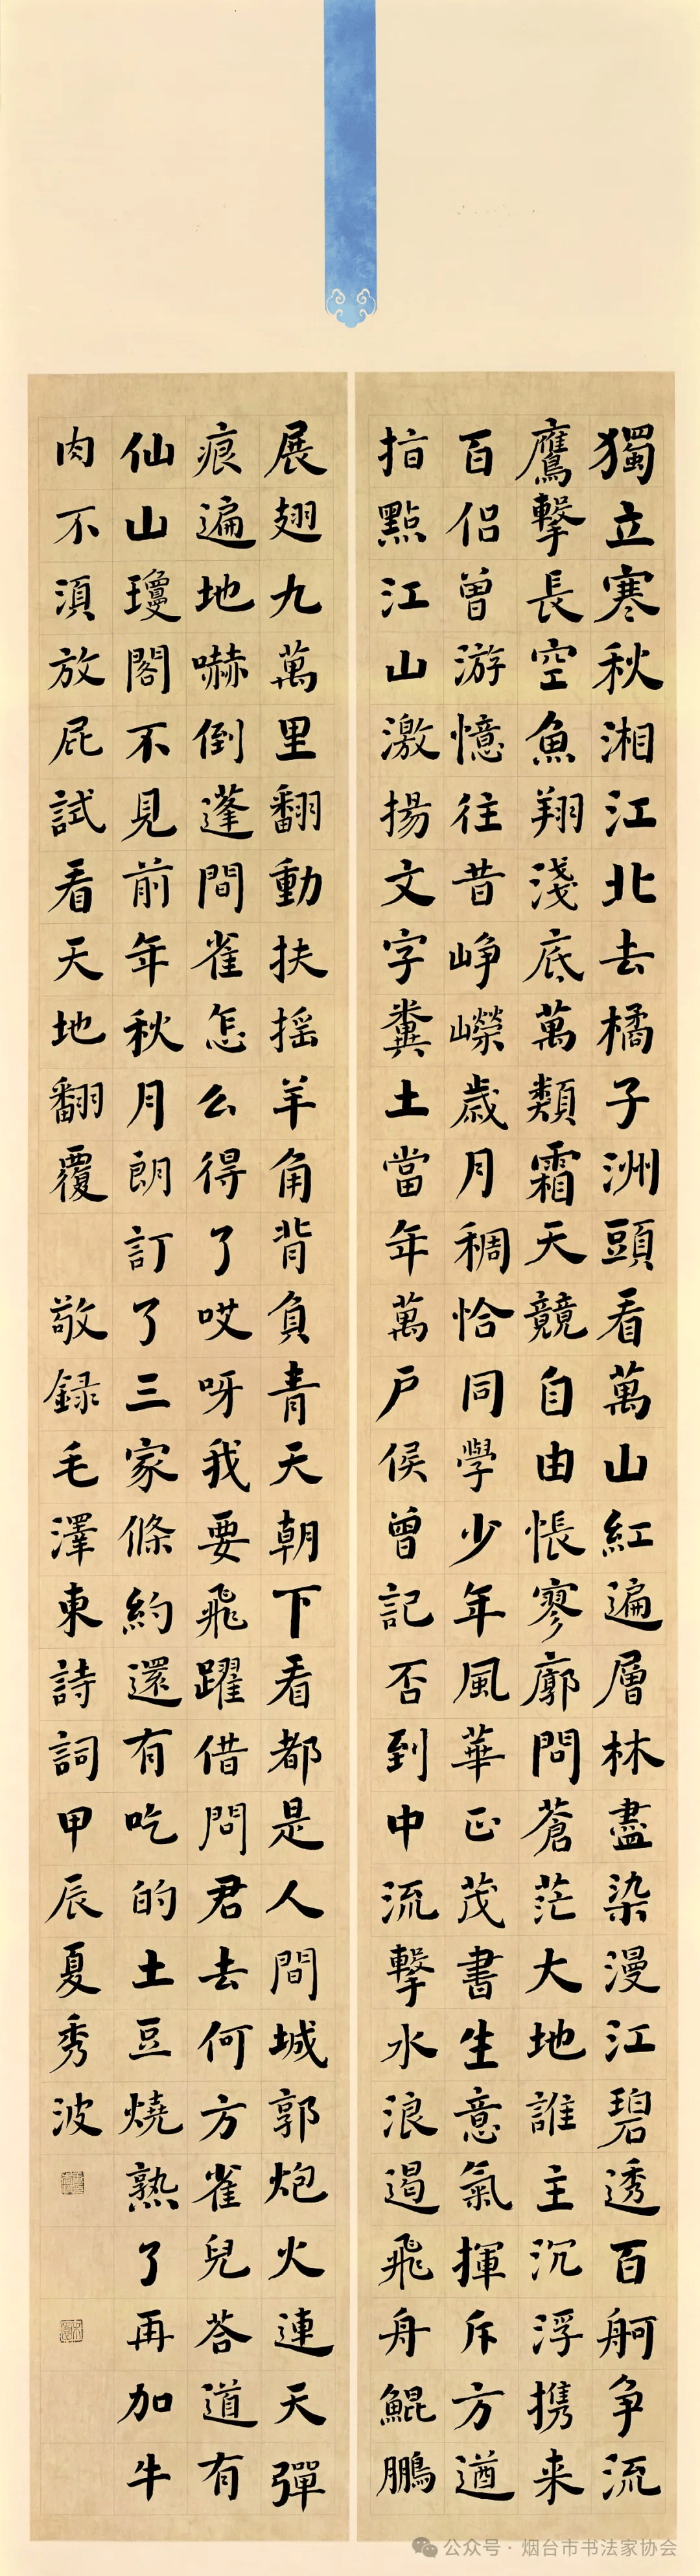 獨立寒秋湘江北去橘子洲頭看萬山紅遍層林盡染漫江碧透百舸争流
鷹擊長空魚翔淺底萬類霜天競自由悵寥廓問蒼茫大地誰主沉浮携来
百侣曾游憶往昔峥嶸歲月稠恰同學少年風華正茂書生意氣揮斥方遒
指點江山激揚文字糞土當年萬户侯曾記否到中流擊水浪遏飛舟鯤鵬
展翅九萬里翻動扶摇羊角背負青天朝下看都是人間城郭炮火連天彈
痕遍地嚇倒蓬間雀怎么得了哎呀我要飛躍借問君去何方雀兒答道有
仙山瓊閣不見前年秋月朗訂了三家條約還有吃的土豆燒熟了再加牛
肉不須放屁試看天地翻覆 敬録毛澤東詩詞甲辰夏秀波
公众号·烟台市书法家协会